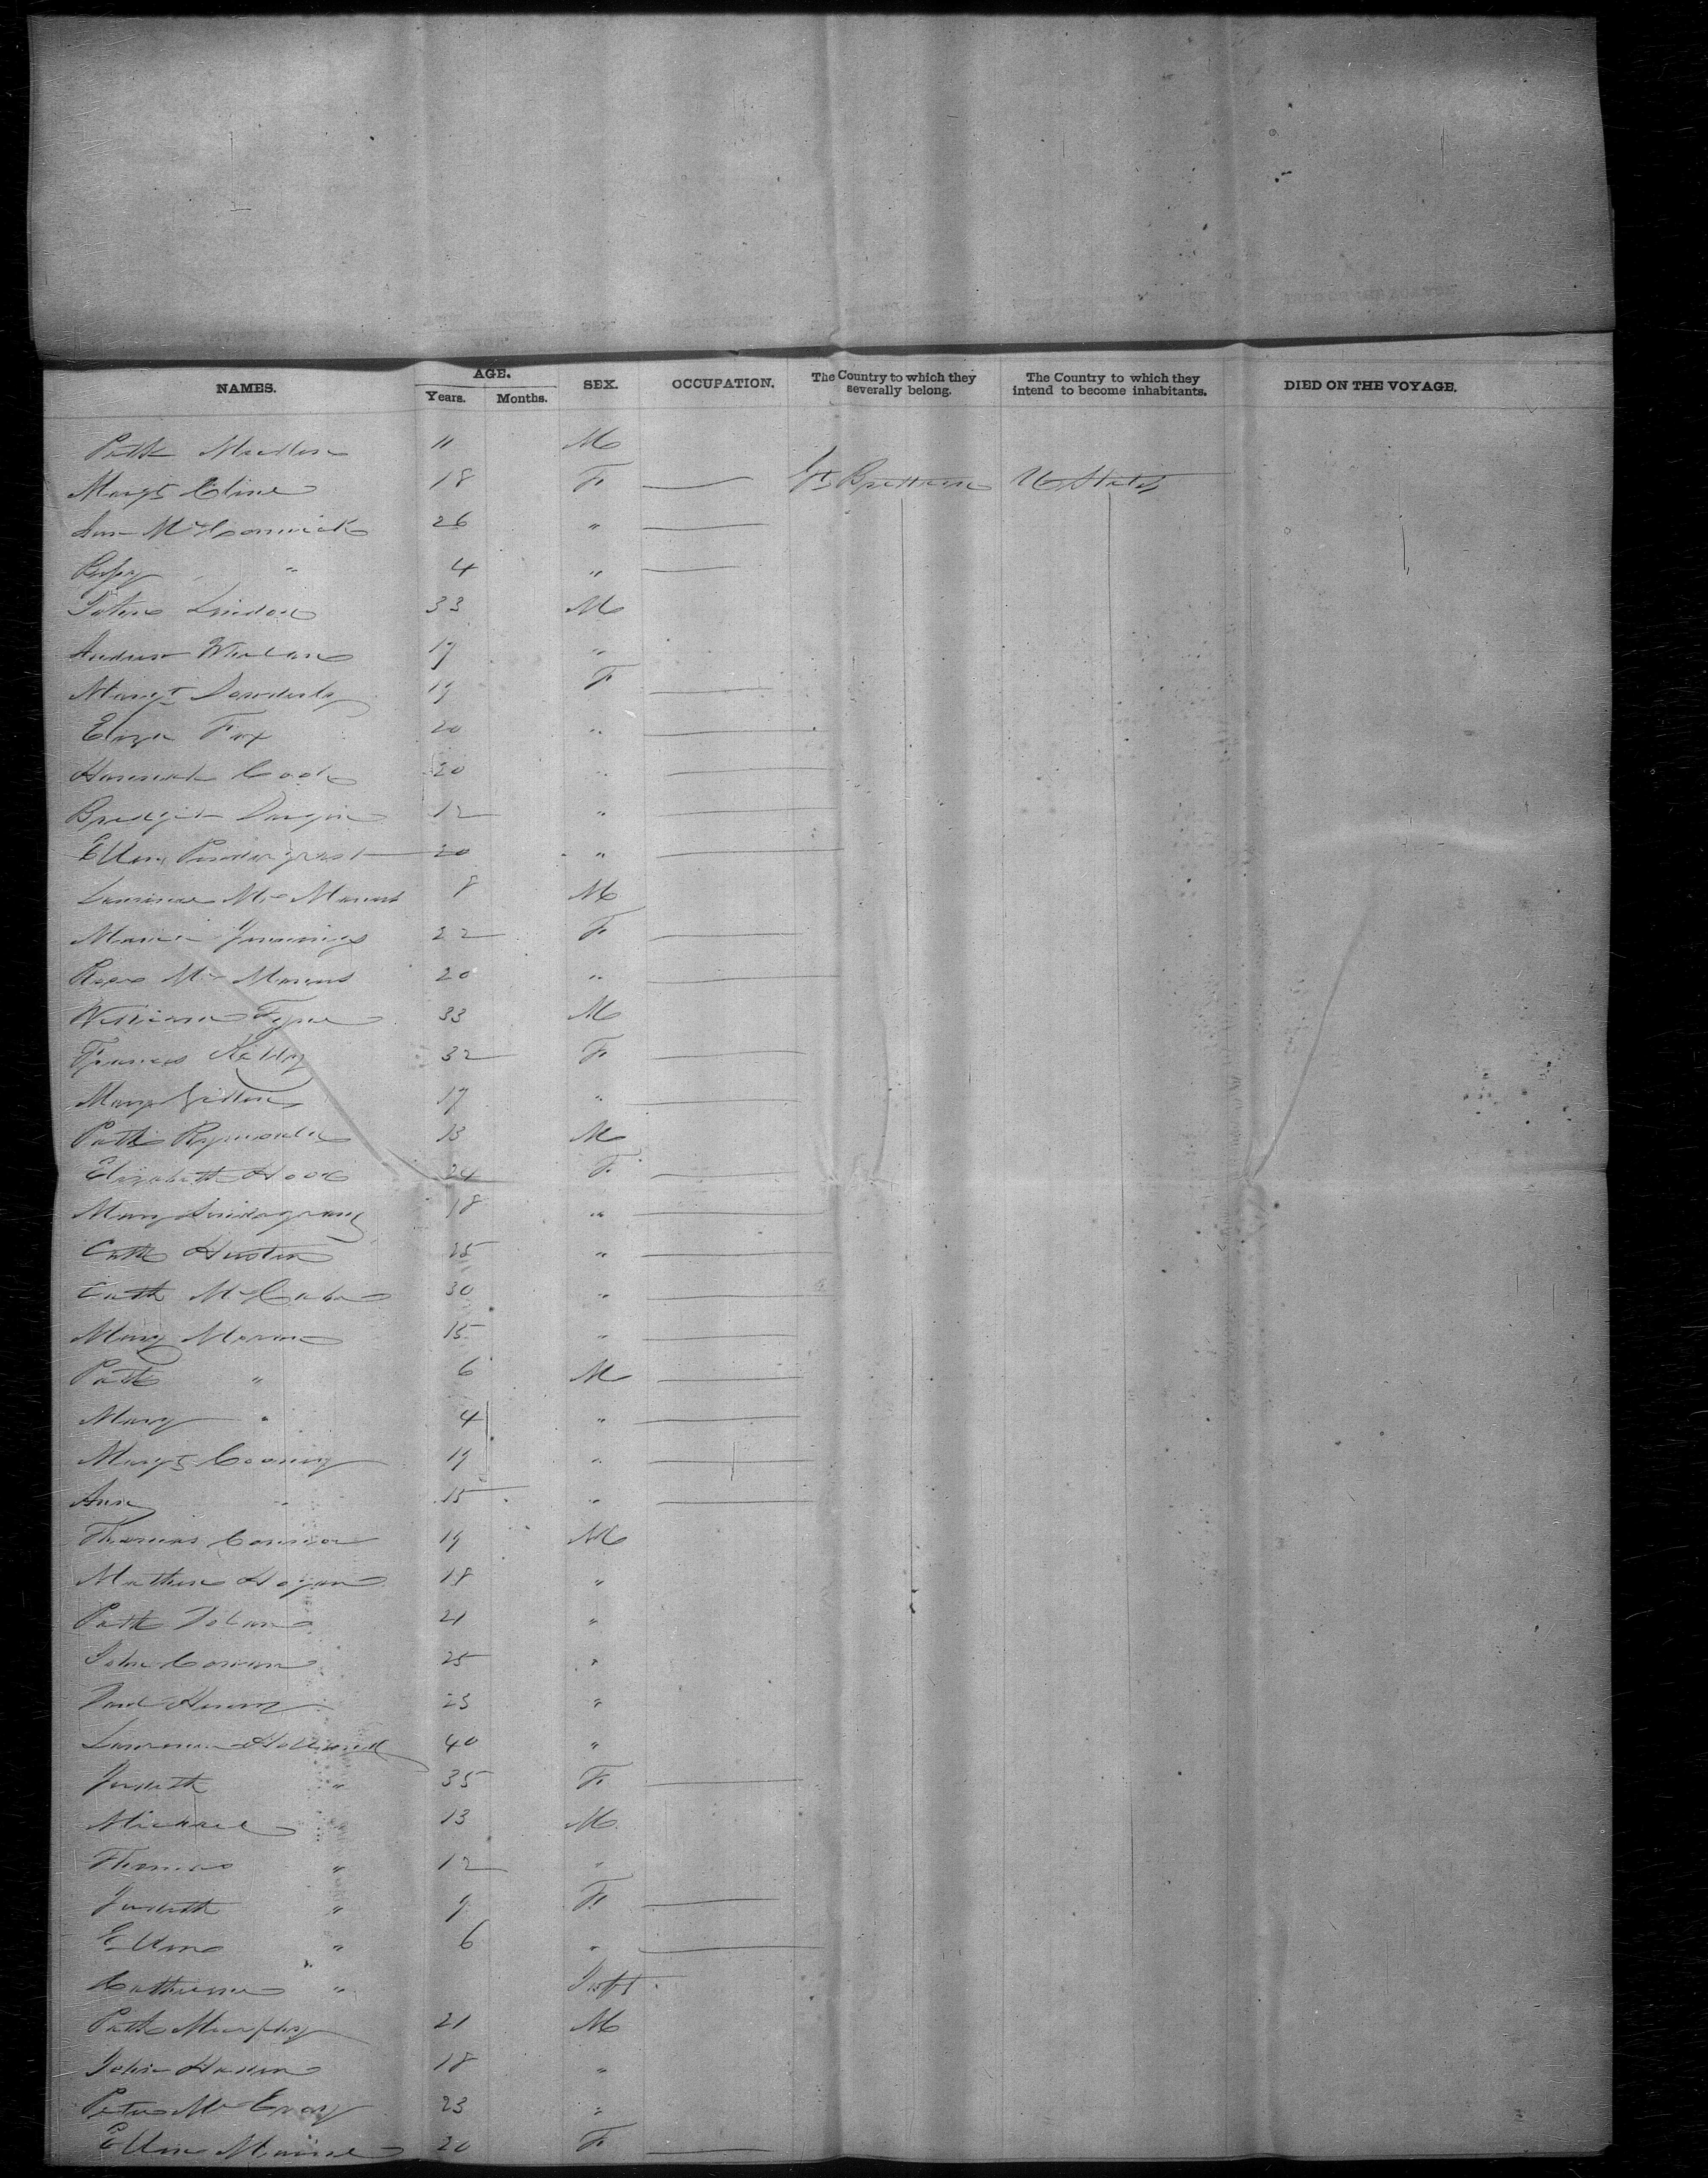 NAMES. AGE. SEX. OCCUPATION. The Country to which they severally belong. The Country to which they intend to become inhabitants. DIED ON THE VOYAGE.
Years. Months.
Patk 11 M
Margt Cline 18 F Gt Brittain U States
Ann McCormick 26 "
" 4 "
John Lindon 33 M
Andrew Whelan 17 "
Margt 19 F
Eliza Fox 20 "
Hannah Cook 20 "
Bridget 12 "
Ellen Pendergrast 20 "
Lawrence McManus 8 M
Maria Jennings 22 F
Rose McManus 20 "
William 33 M
Frances Reilly 32 F
Mary 17 "
Patk Reynolds 13 M
Elizabeth 24 F
Mary 18 "
Cath Huston 25 "
Cath McCabe 30 "
Mary Moran 15 "
Patk " 6 M
Mary " 4 "
Margt Cooney 19 "
Ann " 15 "
Thomas Connor 19 M
Mathew Hogan 18 "
Patk Dolan 21 "
John 25 "
Henry 23 "
Lawrence Holland 40 "
Judith " 35 F
Michael 13 M
Thomas " 12 "
Judith " 9 F
Ellen " 6 "
Catherine " Inft
Patk Murphy 21 M
John 18 "
Peter McEvoy 23 "
Ellen 20 F